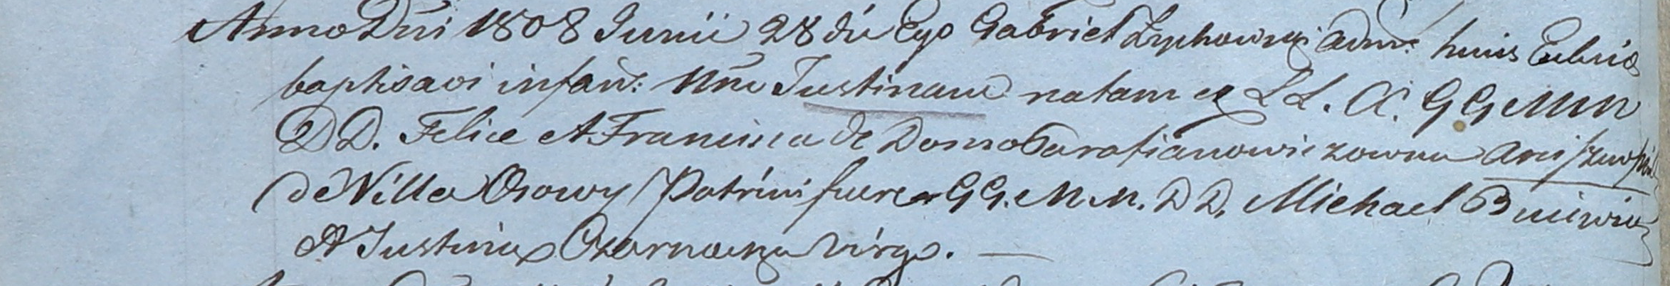 Anno Dni 1808 Junii 28 die Ego Gabriel Zychowski adm: huius Eccliae
baptisavi infan: Nne Justinam natam ex L L. C. G G M M
D D. Felice et Francisca de Domo Parafianowiczowna
de Villa Osowy Patrini fuere G G. M M. D D. Michael
et Justina Czarnocka virgo. —